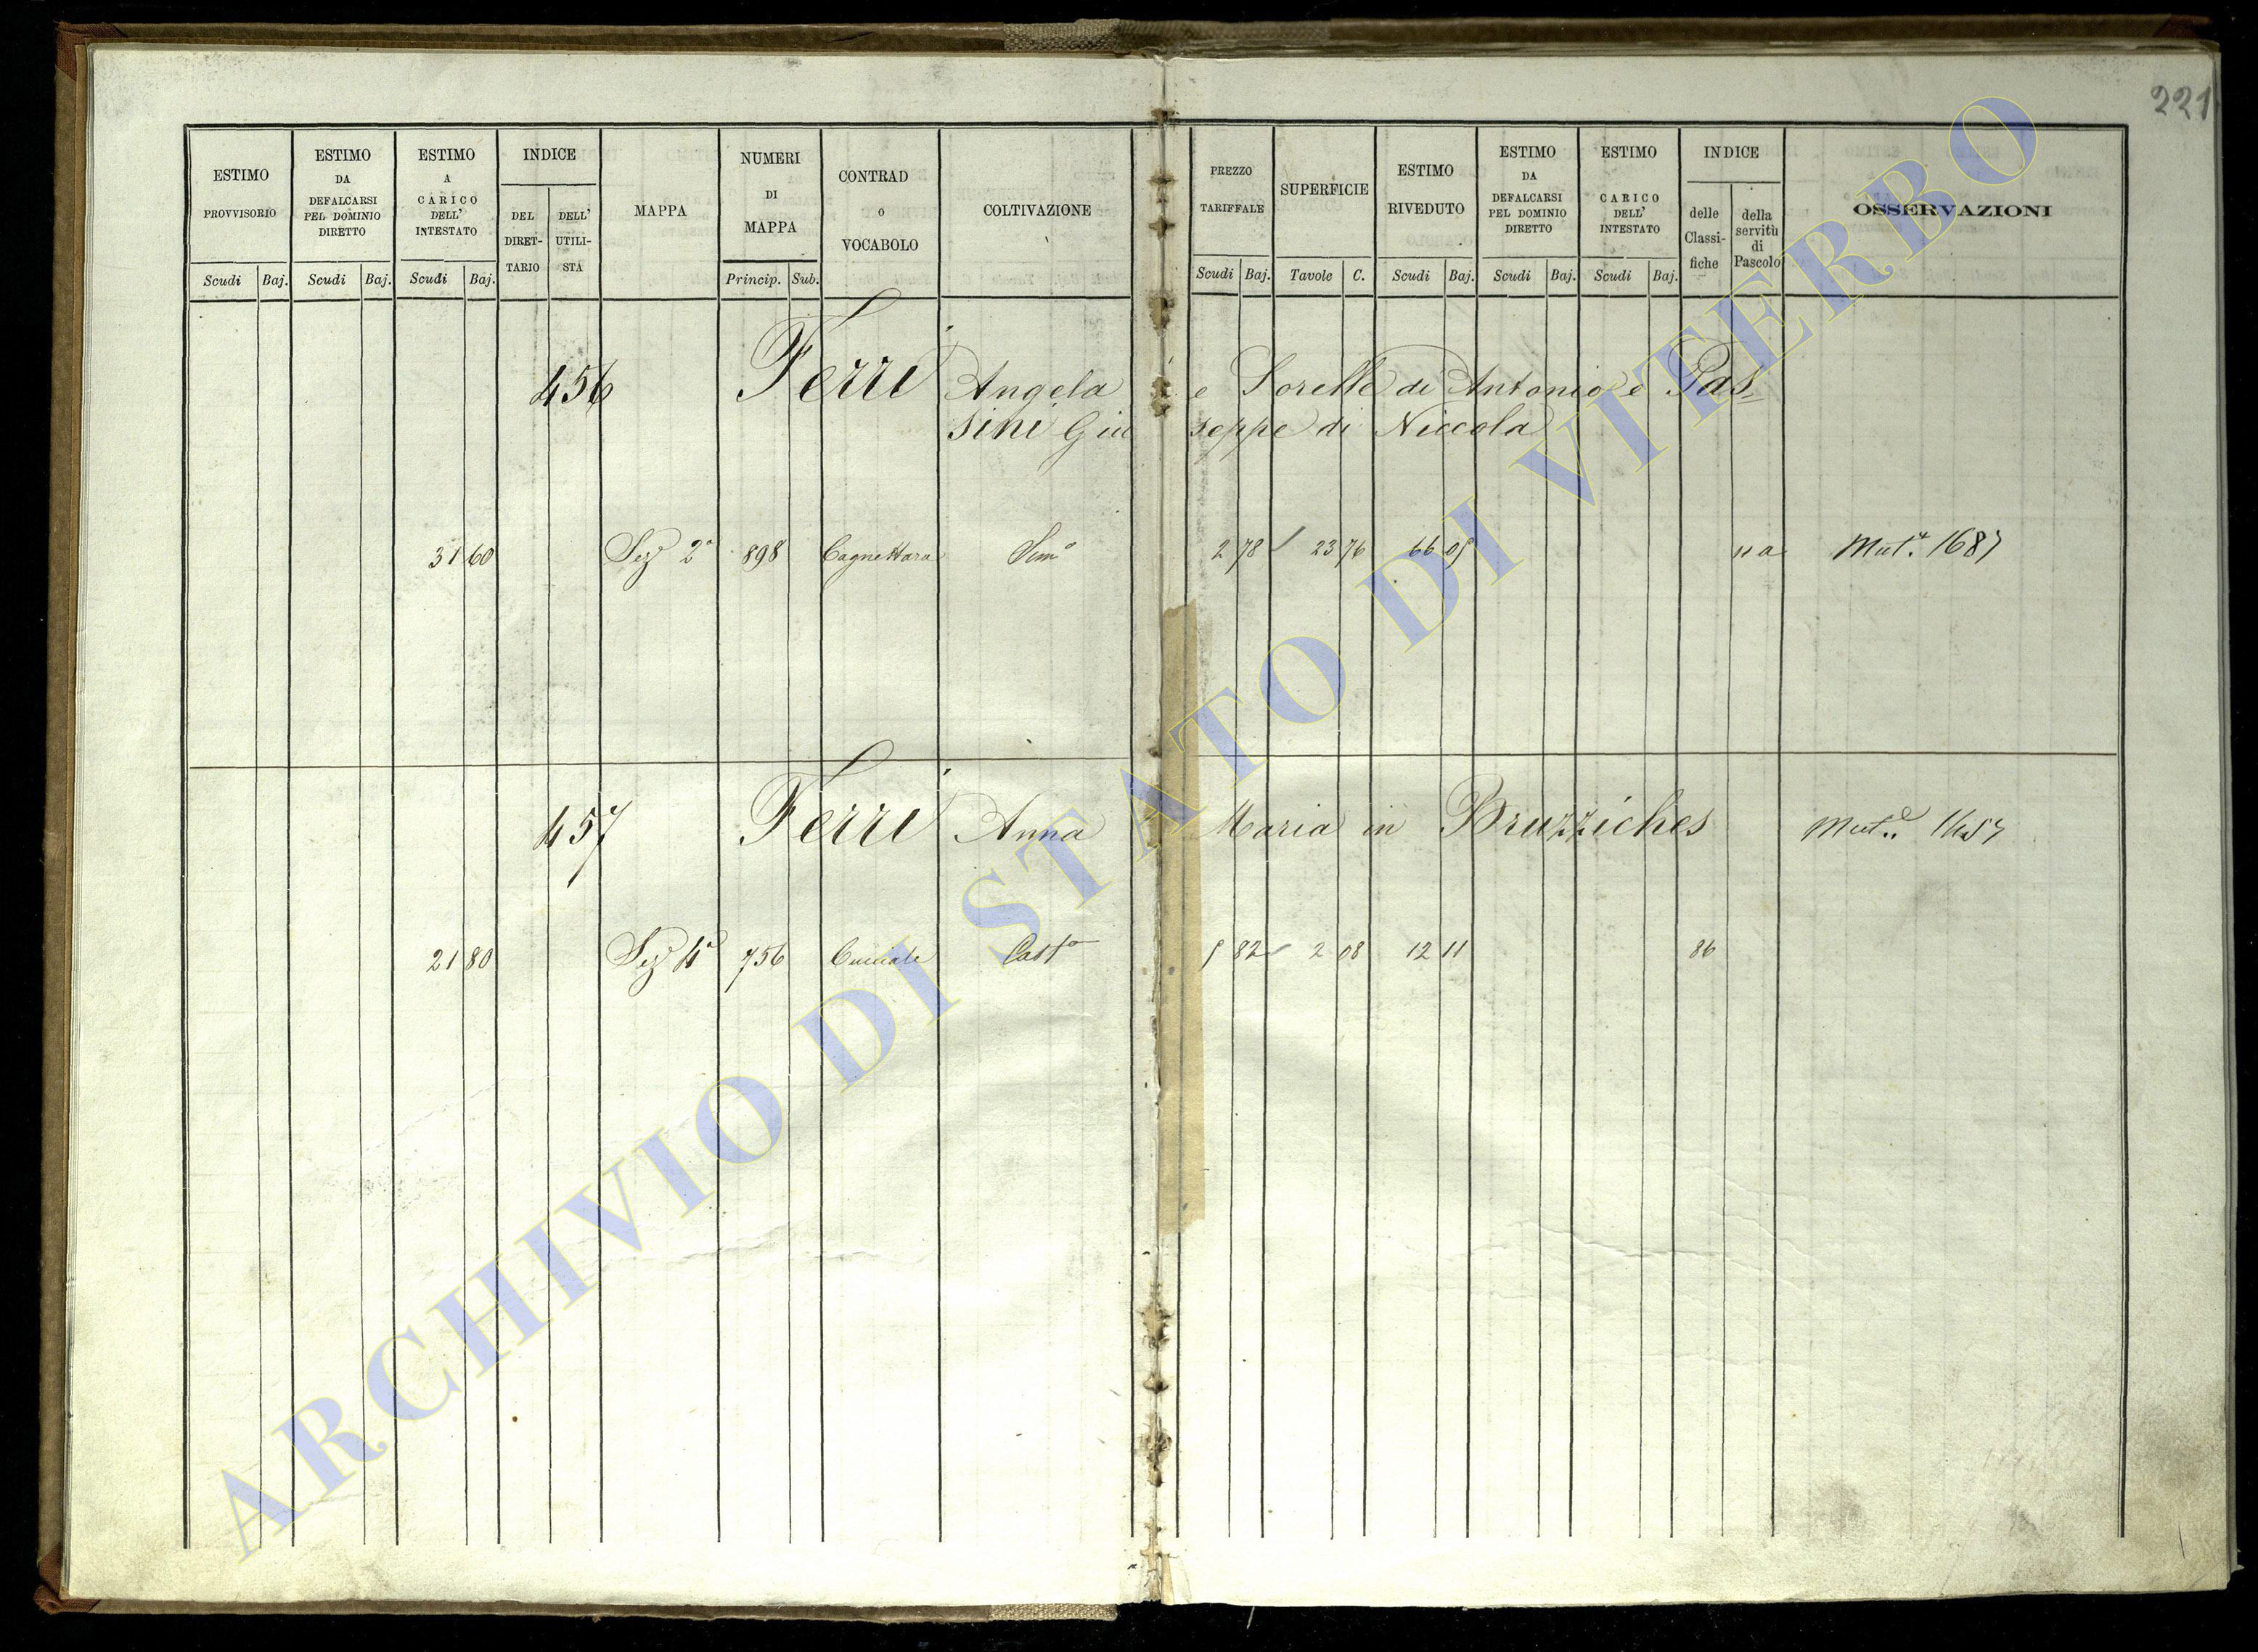 221
ESTIMO PROVVISORIO Scudi Baj.
ESTIMO DA DEFALCARSI PEL DOMINIO DIRETTO Scudi Baj.
ESTIMO A CARICO DELL' INTESTATO Scudi Baj.
INDICE DEL DIRET-TARIO DELL' UTILI-STA
MAPPA
NUMERI DI MAPPA Princip. Sub.
CONTRAD o VOCABOLO
COLTIVAZIONE
PREZZO TARIFFALE Scudi Baj.
SUPERFICIE Tavole C.
ESTIMO RIVEDUTO Scudi Baj.
ESTIMO DA DEFALCARSI PEL DOMINIO DIRETTO Scudi Baj.
ESTIMO CARICO DELL' INTESTATO Scudi Baj.
INDICE delle Classi-fiche della servitù di Pascolo
OSSERVAZIONI
456 Ferri Angela e Sorelle di Antonio e Pas=
sini Giuseppe di Niccola
31 60 Sez 2a 898 Cagnettara Sem° 2 78 23 76 66 05 Mut.a 1687
457 Ferri Anna Maria in Bruzziches Mut.e
21 80 Sez 4a 756 Cast° 5 82 2 08 12 11 86
ARCHIVIO DI STATO DI VITERBO